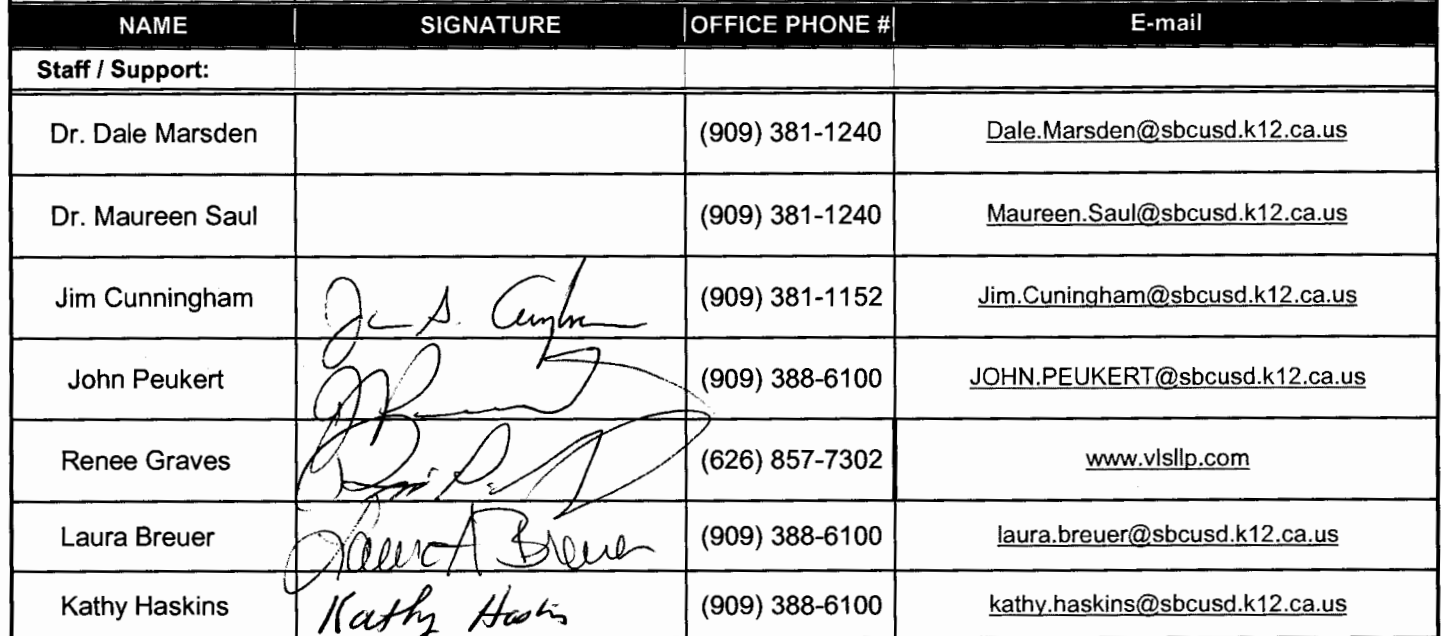 NAME SIGNATURE OFFICE PHONE # E-mail
Staff / Support:
Dr. Dale Marsden (909) 381-1240 Dale.Marsden@sbcusd.k12.ca.us
Dr. Maureen Saul (909) 381-1240 Maureen.Saul@sbcusd.k12.ca.us
Jim Cunningham (909) 381-1152 Jim.Cuningham@sbcusd.k12.ca.us
John Peukert (909) 388-6100 JOHN.PEUKERT@sbcusd.k12.ca.us
Renee Graves (626) 857-7302 www.vlsllp.com
Laura Breuer Laura A Breuer (909) 388-6100 laura.breuer@sbcusd.k12.ca.us
Kathy Haskins Kathy Haskins (909) 388-6100 kathy.haskins@sbcusd.k12.ca.us